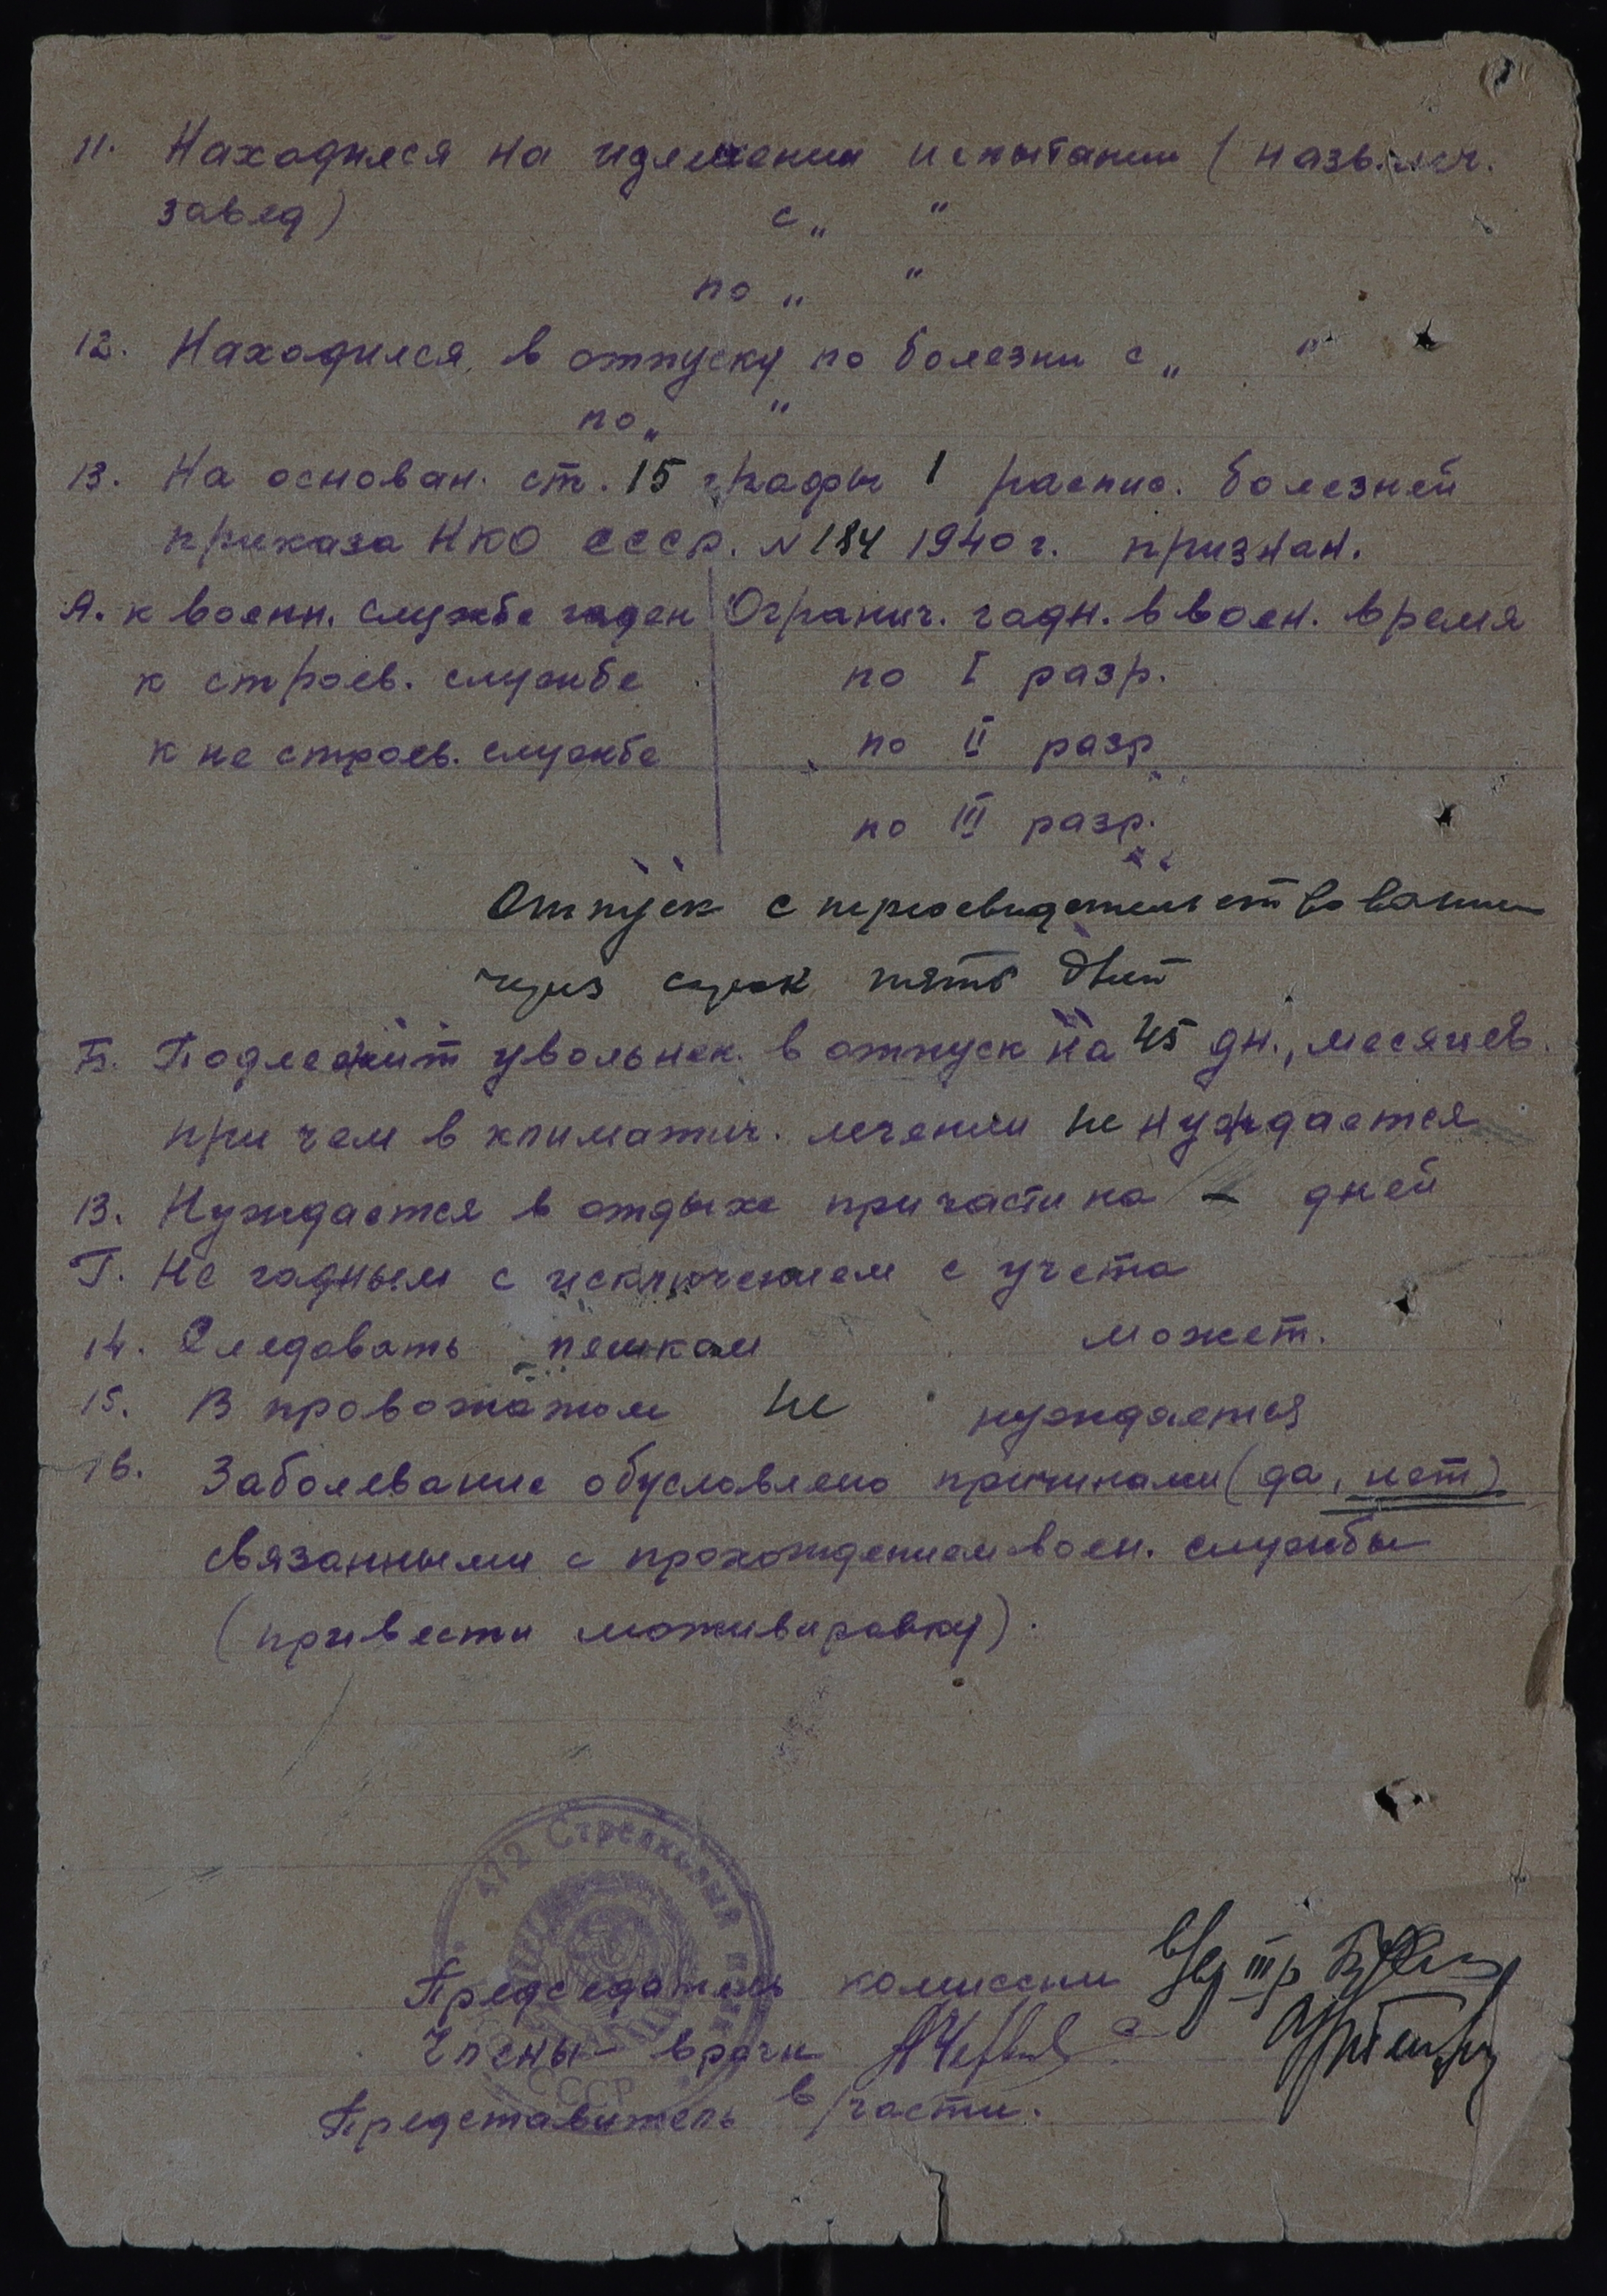 11. Находился на излечении испытании (назв. леч.
завед) с „ “
по „ “
12. Находился в отпуску по болезни с „ “
по „ “
13. На основан. ст. 15 графы 1 распис. болезней
приказа НКО СССР. № 184 1940 г. признан.
А. к военн. службе годен | Огранич. годн. в воен. время
к строев. службе по I разр.
к не строев. службе по II разр
по III разр.
Отпуск с переосвидетельствованием
через сорок пять дней
Б. Подлежит увольнен. в отпуск на 45 дн., месяцев.
при чем в климатич. лечении не нуждается
В. Нуждается в отдыхе при части на – дней
Г. Не годным с исключением с учета
14. Следовать пешком может.
15. В провожатом не нуждается
16. Заболевание обусловлено причинами (да, нет)
связанными с прохождением воен. службы
(привести мотивировку).
472 Стрелковый
СССР
Председатель комиссии
Члены - врачи
Представитель в/части.